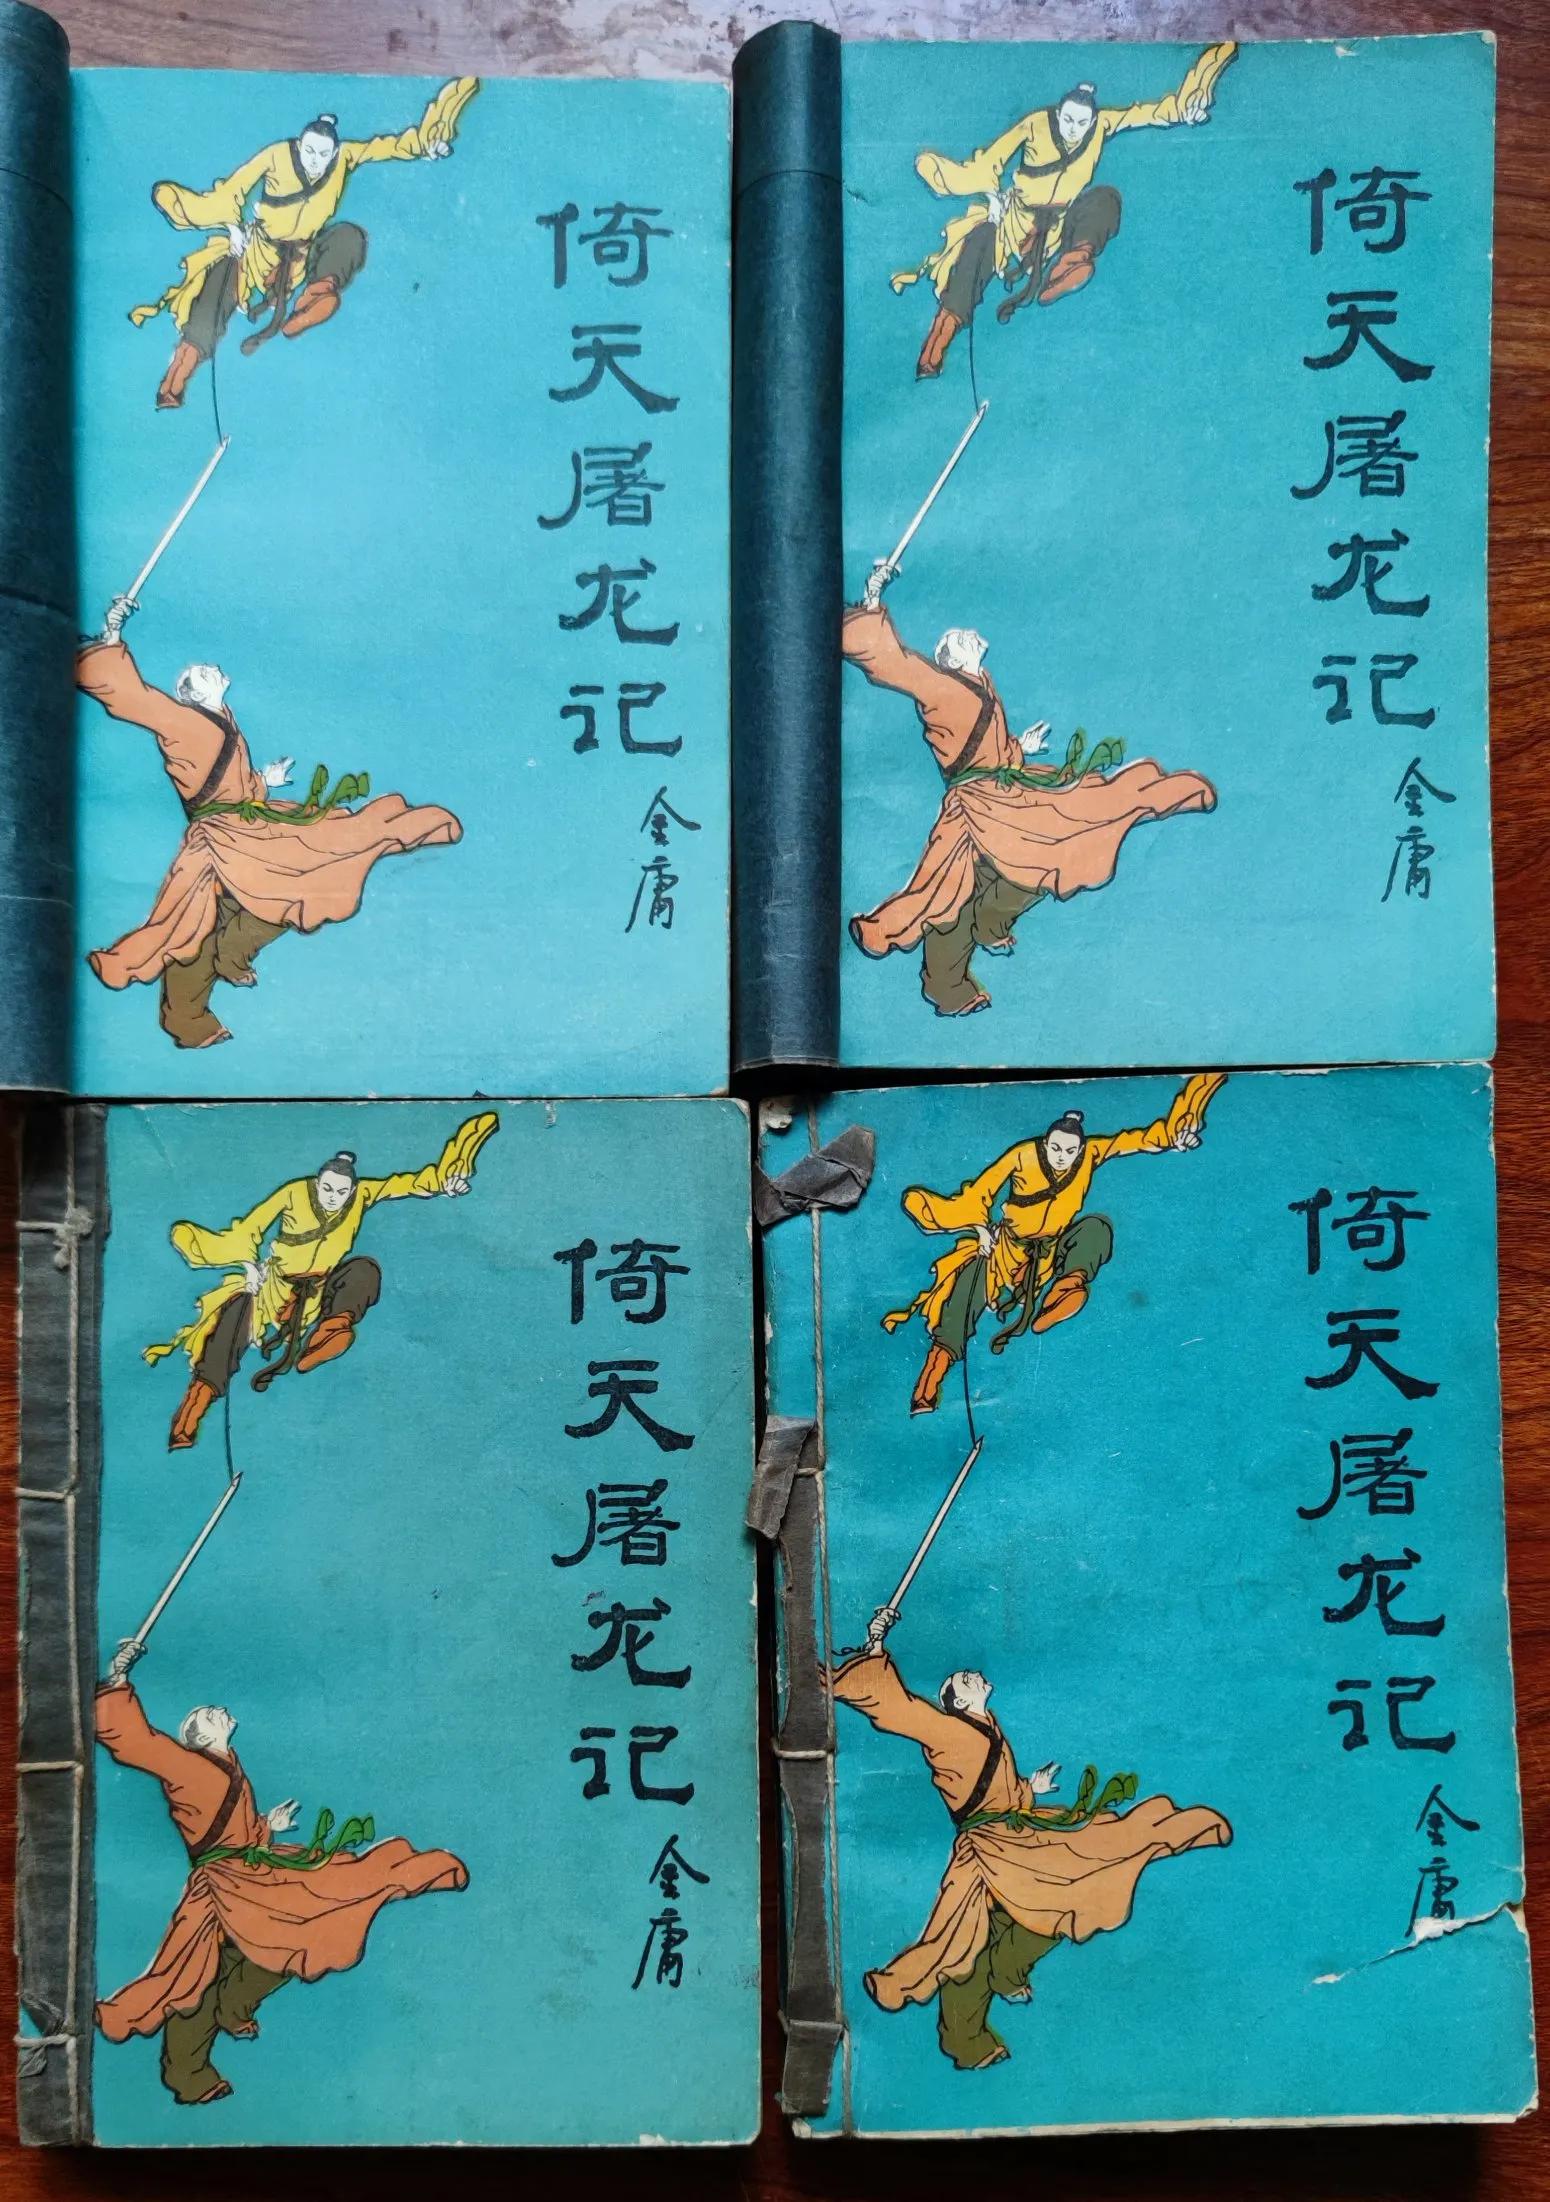 倚天屠龙记
金庸
倚天屠龙记
金庸
倚天屠龙记
金庸
倚天屠龙记
金庸